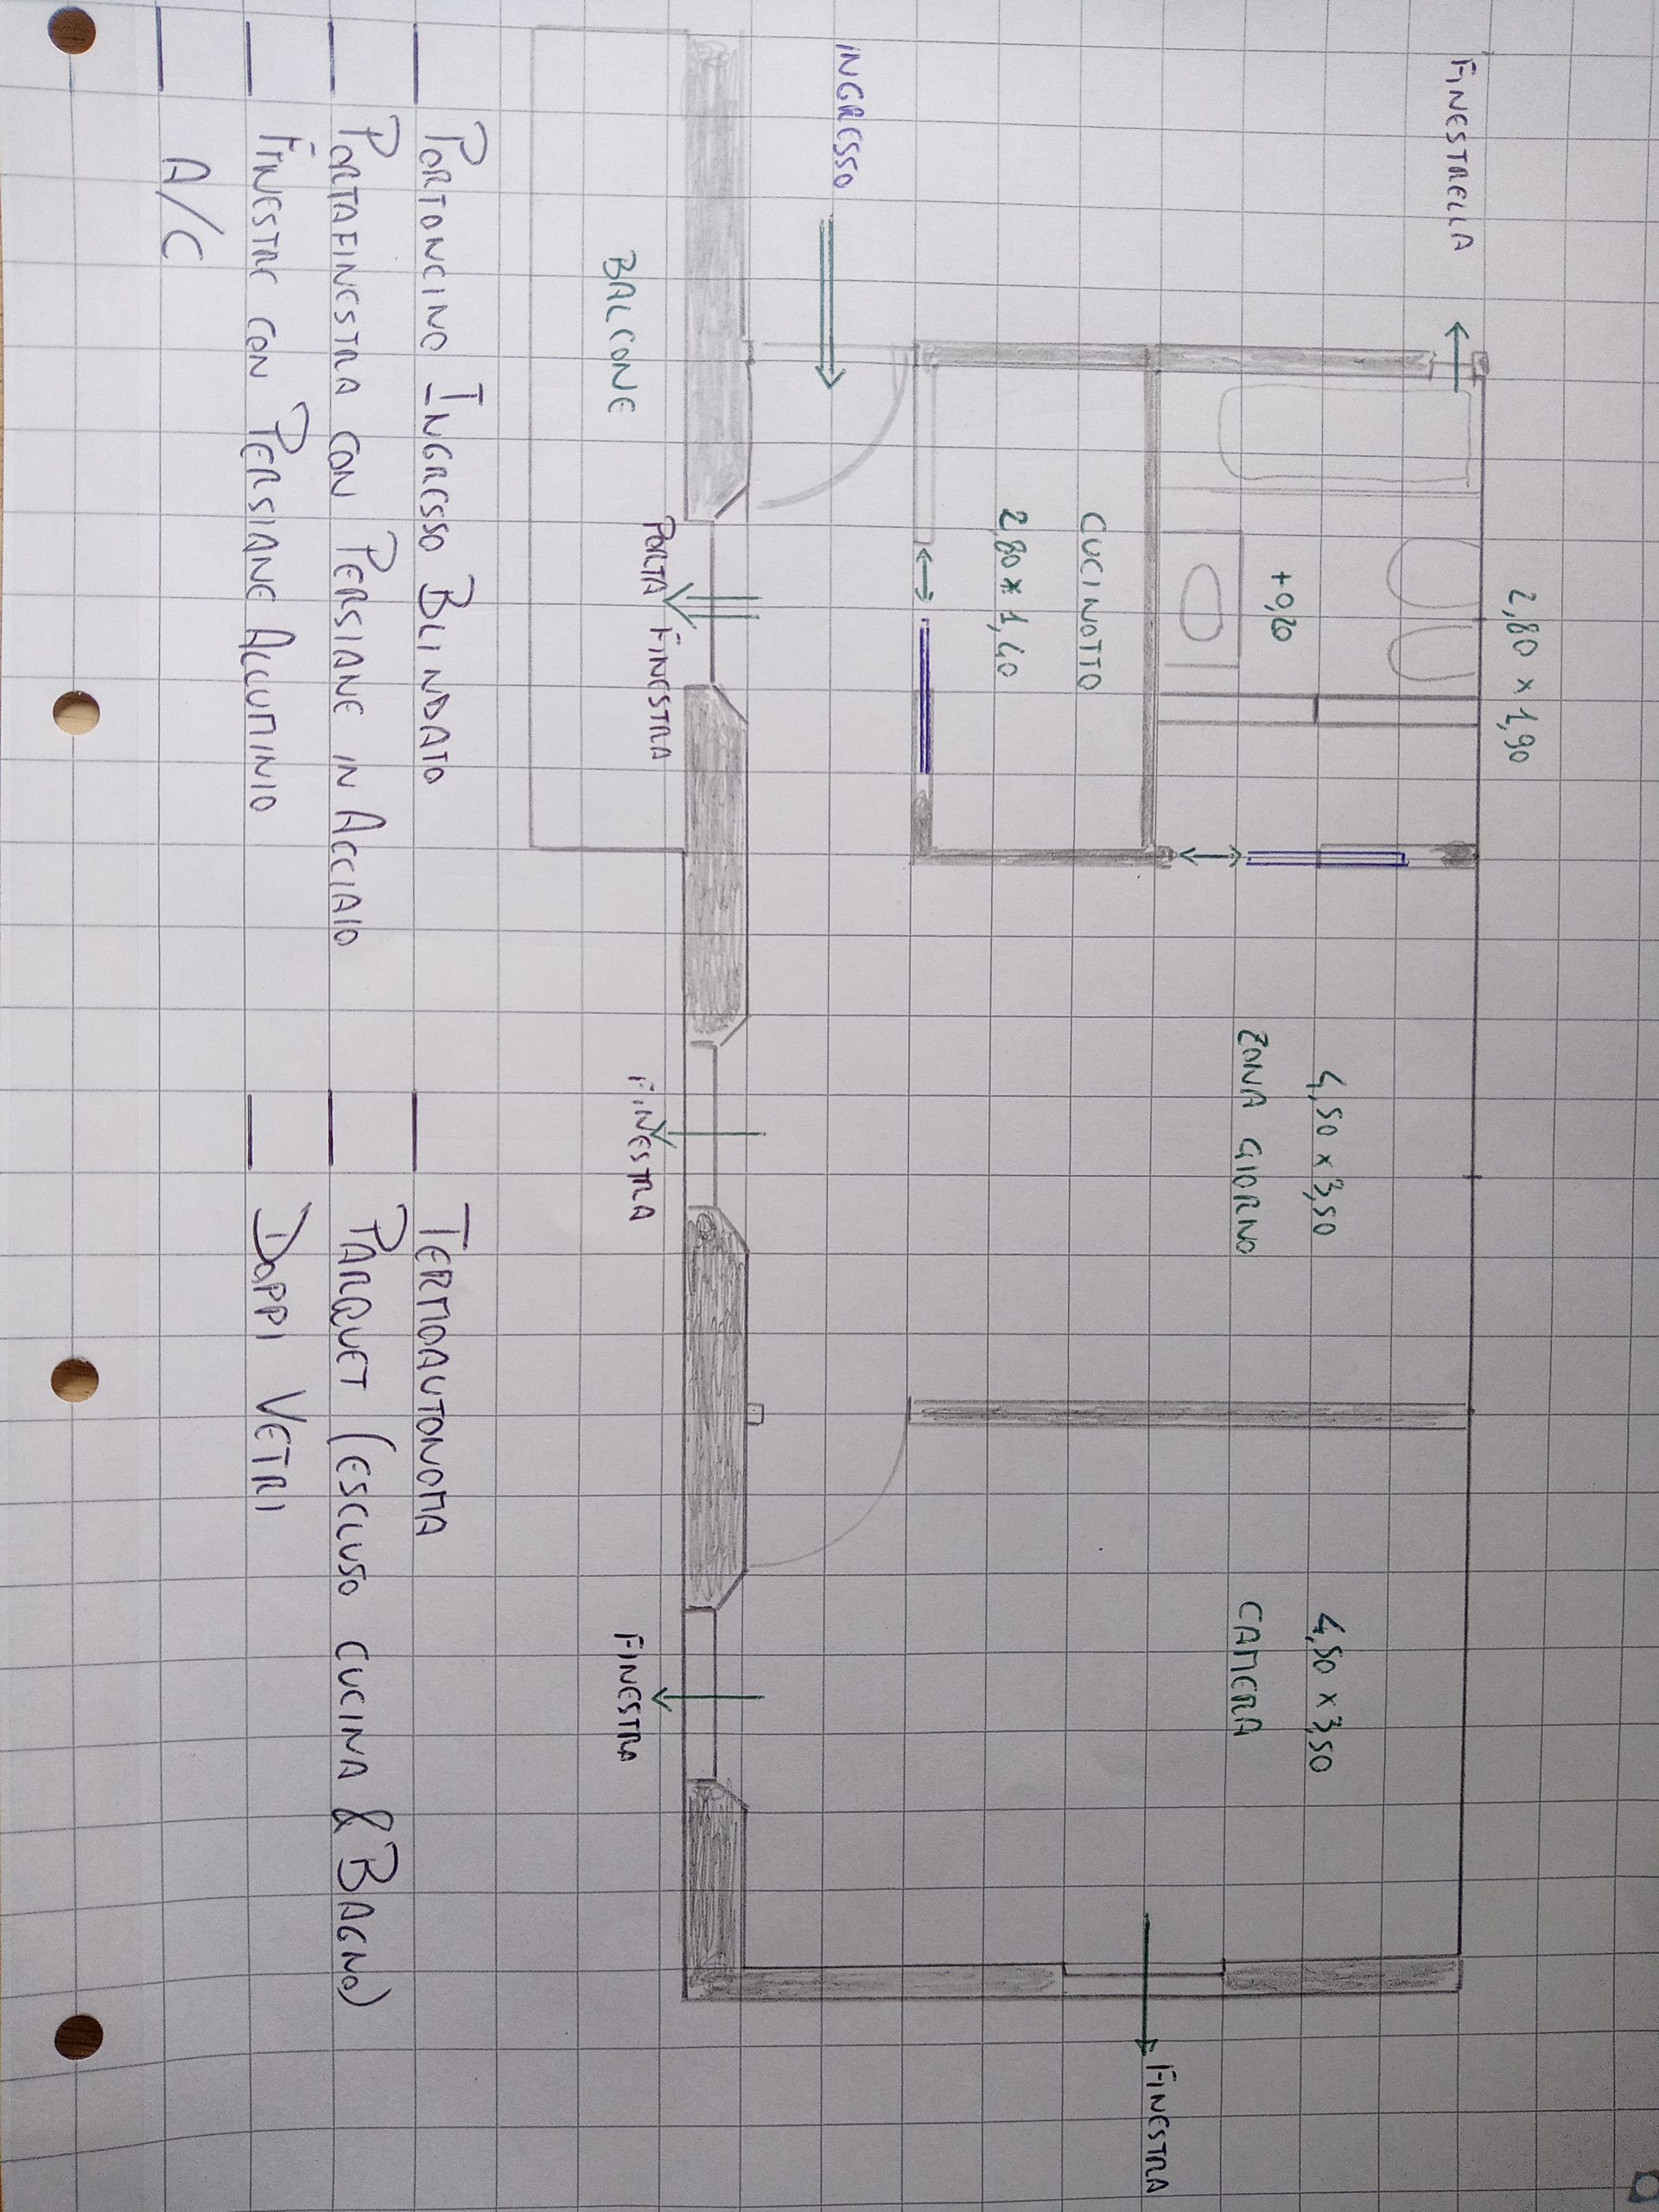 FINESTRELLA
2,80 x 1,90
+0,20
4,50 x 3,50
ZONA GIORNO
4,50 x 3,50
CAMERA
FINESTRA
CUCINOTTO
2,80 x 1,40
INGRESSO
PORTA FINESTRA
FINESTRA
FINESTRA
BALCONE
PORTONCINO INGRESSO BLINDATO
PORTAFINESTRA CON PERSIANE IN ACCIAIO
FINESTRE CON PERSIANE ALLUMINIO
A/C
TERMOAUTONOMA
PARQUET (ESCLUSO CUCINA & BAGNO)
DOPPI VETRI